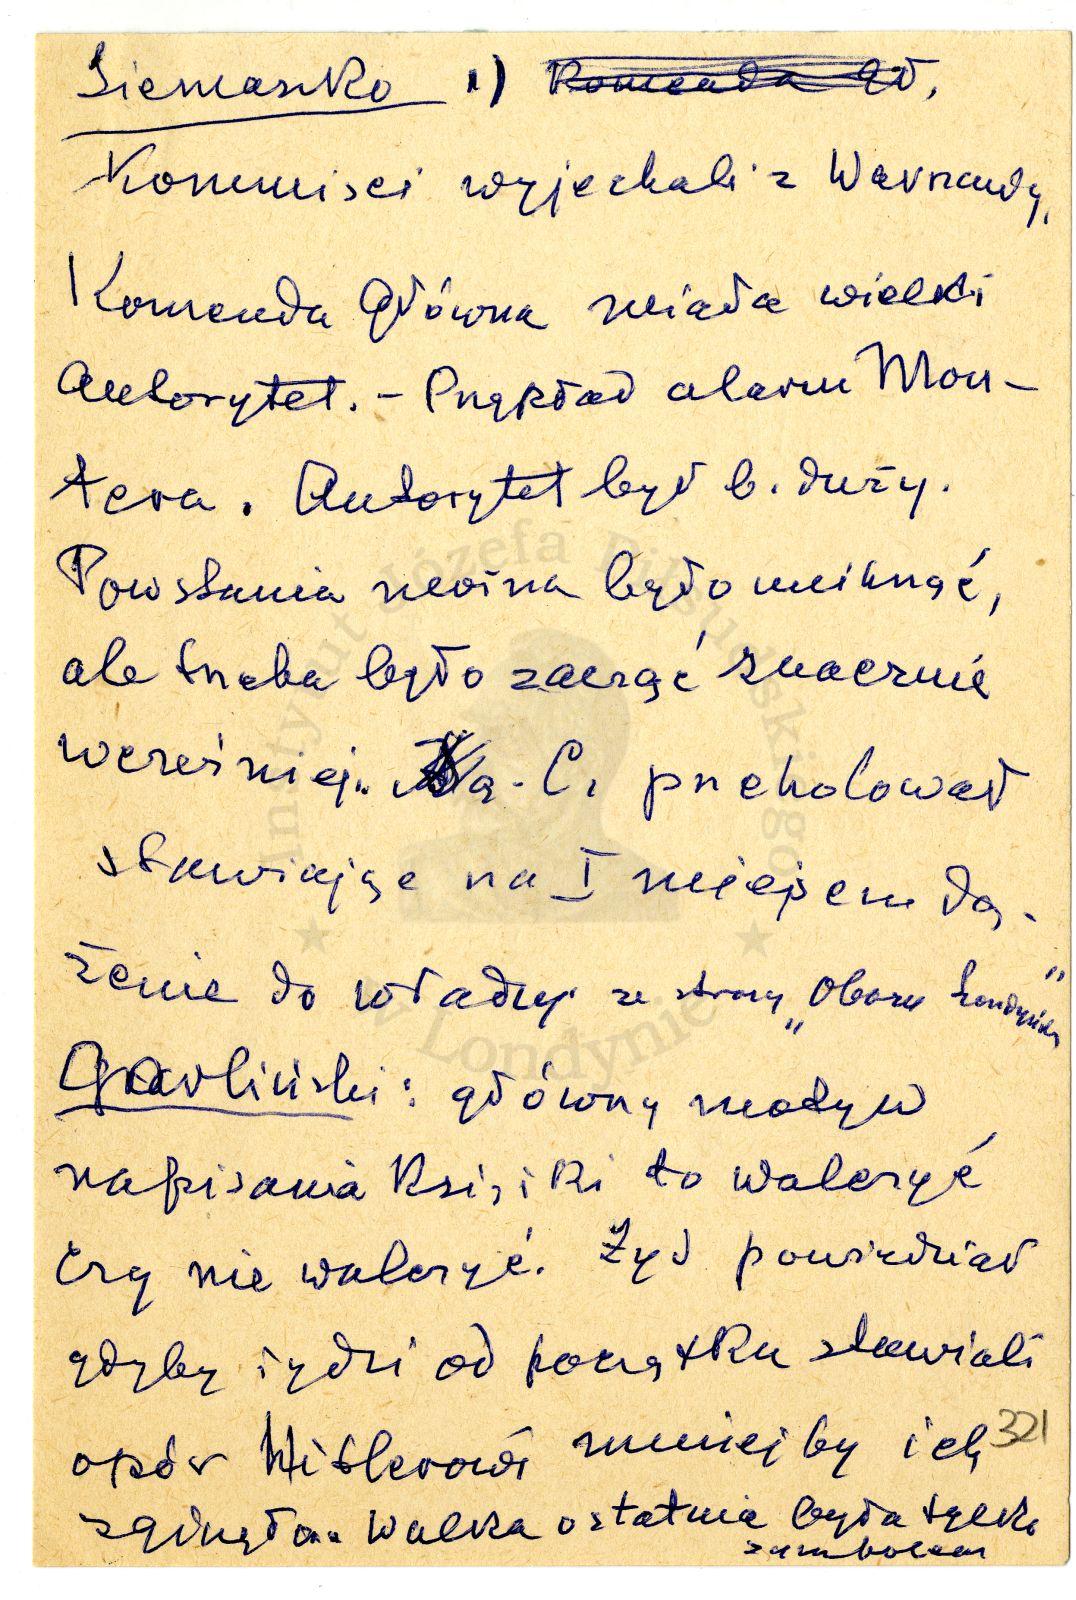 Siemaszko 1) Komenda Gł.
Komuniści wyjechali z Warszawy,
Komenda Główna miała wielki
autorytet. – Przykład alarm Mon-
tera. Autorytet był b. duży.
Powstania można było uniknąć,
ale trzeba było zacząć znacznie
wcześniej. C. przeholował
stawiając na I miejscu dą-
żenie do władzy ze strony „Obozu Londyńsk."
Garliński: główny motyw
napisania książki to walczyć
czy nie walczyć. Żyd powiedział
gdyby żydzi od początku stawiali
opór Hitlerowi mniej by ich
321
zginęło. Walka ostatnia była tylko
symbolem
Instytut Józefa Piłsudskiego
w Londynie